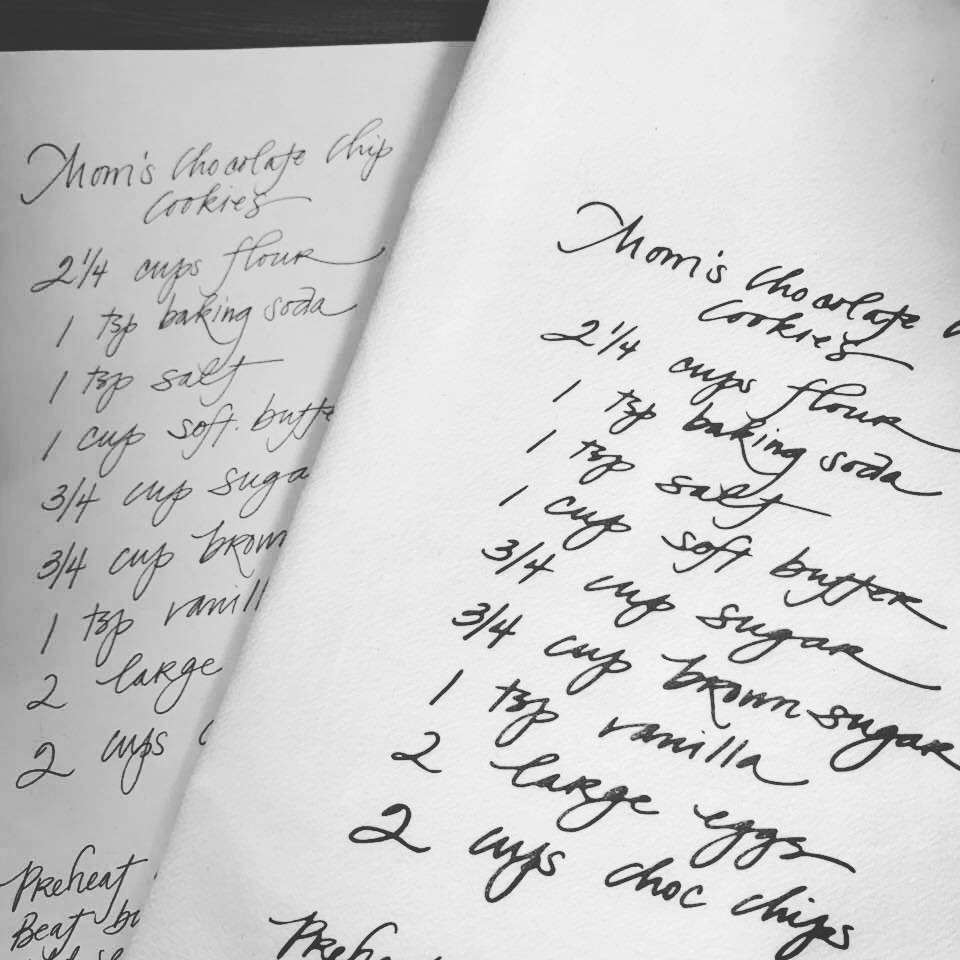 Mom's Chocolate Chip
Cookies
2 1/4 cups flour
1 tsp baking soda
1 tsp salt
1 cup soft. butte
3/4 cup suga
3/4 cup brown
1 tsp vanill
2 large
2 cups
Preheat
Beat bu
Mom's Chocolate
Cookies
2 1/4 cups flour
1 tsp baking soda
1 tsp salt
1 cup soft butter
3/4 cup sugar
3/4 cup brown sugar
1 tsp vanilla
2 large eggs
2 cups choc chips
Prehea